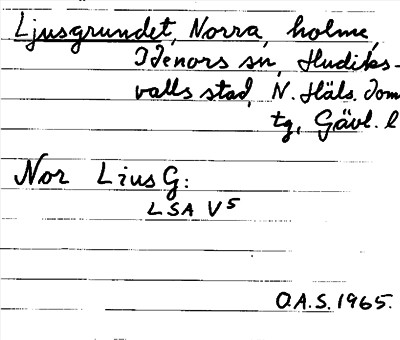 Ljusgrundet, Norra, holme,
Idenors sn, Hudiks-
valls stad, N. Häls. dom
tg, Gävl. l
Nor Lius G:
LSA V5
O.A.S. 1965.